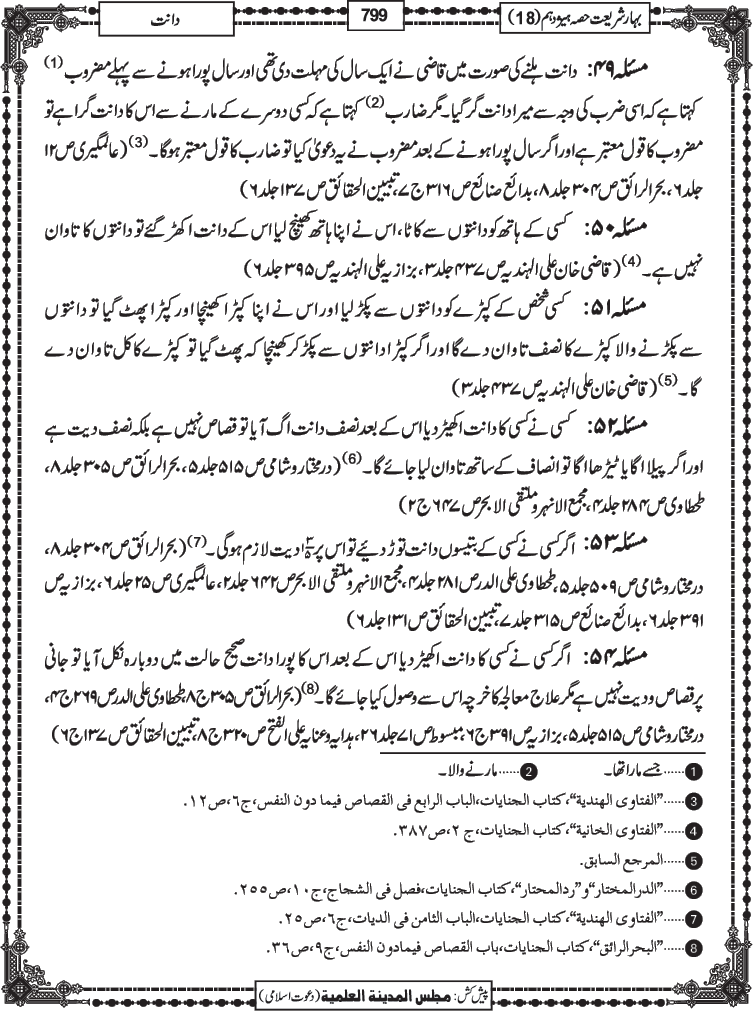 بہارشریعت حصہ ہیژدہم (18)
799
دانت
مسئلہ ۴۹: دانت ہلنے کی صورت میں قاضی نے ایک سال کی مہلت دی تھی اور سال پورا ہونے سے پہلے مضروب (1)
کہتا ہے کہ اسی ضرب کی وجہ سے میرا دانت گرگیا۔ مگر ضارب (2) کہتا ہے کہ کسی دوسرے کے مارنے سے اس کا دانت گرا ہے تو
مضروب کا قول معتبر ہے اور اگر سال پورا ہونے کے بعد مضروب نے یہ دعویٰ کیا تو ضارب کا قول معتبر ہوگا۔ (3) (عالمگیری ص ۱۲
جلد ۶، بحرالرائق ص ۳۰۴ جلد ۸، بدائع صنائع ص ۳۱۶ ج ۷، تبیین الحقائق ص ۱۳۷ جلد ۶)
مسئلہ ۵۰: کسی کے ہاتھ کو دانتوں سے کاٹا، اس نے اپنا ہاتھ کھینچ لیا اس کے دانت اکھڑ گئے تو دانتوں کا تاوان
نہیں ہے۔ (4) (قاضی خان علی الہندیہ ص ۴۳۷ جلد ۳، بزازیہ علی الہندیہ ص ۳۹۵ جلد ۶)
مسئلہ ۵۱: کسی شخص کے کپڑے کو دانتوں سے پکڑ لیا اور اس نے اپنا کپڑا کھینچا اور کپڑا پھٹ گیا تو دانتوں
سے پکڑنے والا کپڑے کا نصف تاوان دے گا اور اگر کپڑا دانتوں سے پکڑ کر کھینچا کہ پھٹ گیا تو کپڑے کا کل تاوان دے
گا۔ (5) (قاضی خان علی الہندیہ ص ۴۳۷ جلد ۳)
مسئلہ ۵۲: کسی نے کسی کا دانت اکھیڑ دیا اس کے بعد نصف دانت اگ آیا تو قصاص نہیں ہے بلکہ نصف دیت ہے
اور اگر پیلا اگا یا ٹیڑھا اگا تو انصاف کے ساتھ تاوان لیا جائے گا۔ (6) (درمختار وشامی ص ۵۱۵ جلد ۵، بحرالرائق ص ۳۰۵ جلد ۸،
طحطاوی ص ۲۸۴ جلد ۴، مجمع الانہر وملتقی الابحر ص ۶۴۷ ج ۲)
مسئلہ ۵۳: اگر کسی نے کسی کے بتیسوں دانت توڑ دئیے تو اس پر ۱ دیت لازم ہوگی۔ (7) (بحرالرائق ص ۳۰۴ جلد ۸،
درمختار وشامی ص ۵۰۹ جلد ۵، طحطاوی علی الدر ص ۲۸۱ جلد ۴، مجمع الانہر وملتقی الابحر ص ۶۴۲ جلد ۲، عالمگیری ص ۲۵ جلد ۶، بزازیہ ص
۳۹۱ جلد ۶، بدائع صنائع ص ۳۱۵ جلد ۷، تبیین الحقائق ص ۱۳۱ جلد ۶)
مسئلہ ۵۴: اگر کسی نے کسی کا دانت اکھیڑ دیا اس کے بعد اس کا پورا دانت صحیح حالت میں دوبارہ نکل آیا تو جانی
پر قصاص ودیت نہیں ہے مگر علاج معالجہ کا خرچہ اس سے وصول کیا جائے گا۔ (8) (بحرالرائق ص ۳۰۵ ج ۸، طحطاوی علی الدر ص ۲۶۹ ج ۴،
درمختار وشامی ص ۵۱۵ جلد ۵، بزازیہ ص ۳۹۱ ج ۶، مبسوط ص ۷۱ جلد ۲۶، ہدایہ وعنایہ علی الفتح ص ۳۲۰ ج ۸، تبیین الحقائق ص ۱۳۷ ج ۶)
1 ......جسے مارا تھا۔ 2 ......مارنے والا۔
3 ......"الفتاوی الھندیۃ"، کتاب الجنایات، الباب الرابع فی القصاص فیما دون النفس، ج۶، ص۱۲.
4 ......"الفتاوی الخانیۃ"، کتاب الجنایات، ج۲، ص۳۸۷.
5 ......المرجع السابق.
6 ......"الدرالمختار" و"ردالمحتار"، کتاب الجنایات، فصل فی الشجاج، ج۱۰، ص۲۵۵.
7 ......"الفتاوی الھندیۃ"، کتاب الجنایات، الباب الثامن فی الدیات، ج۶، ص۲۵.
8 ......"البحرالرائق"، کتاب الجنایات، باب القصاص فیمادون النفس، ج۹، ص۳۶.
پیش کش: مجلس المدینۃ العلمیۃ (دعوت اسلامی)